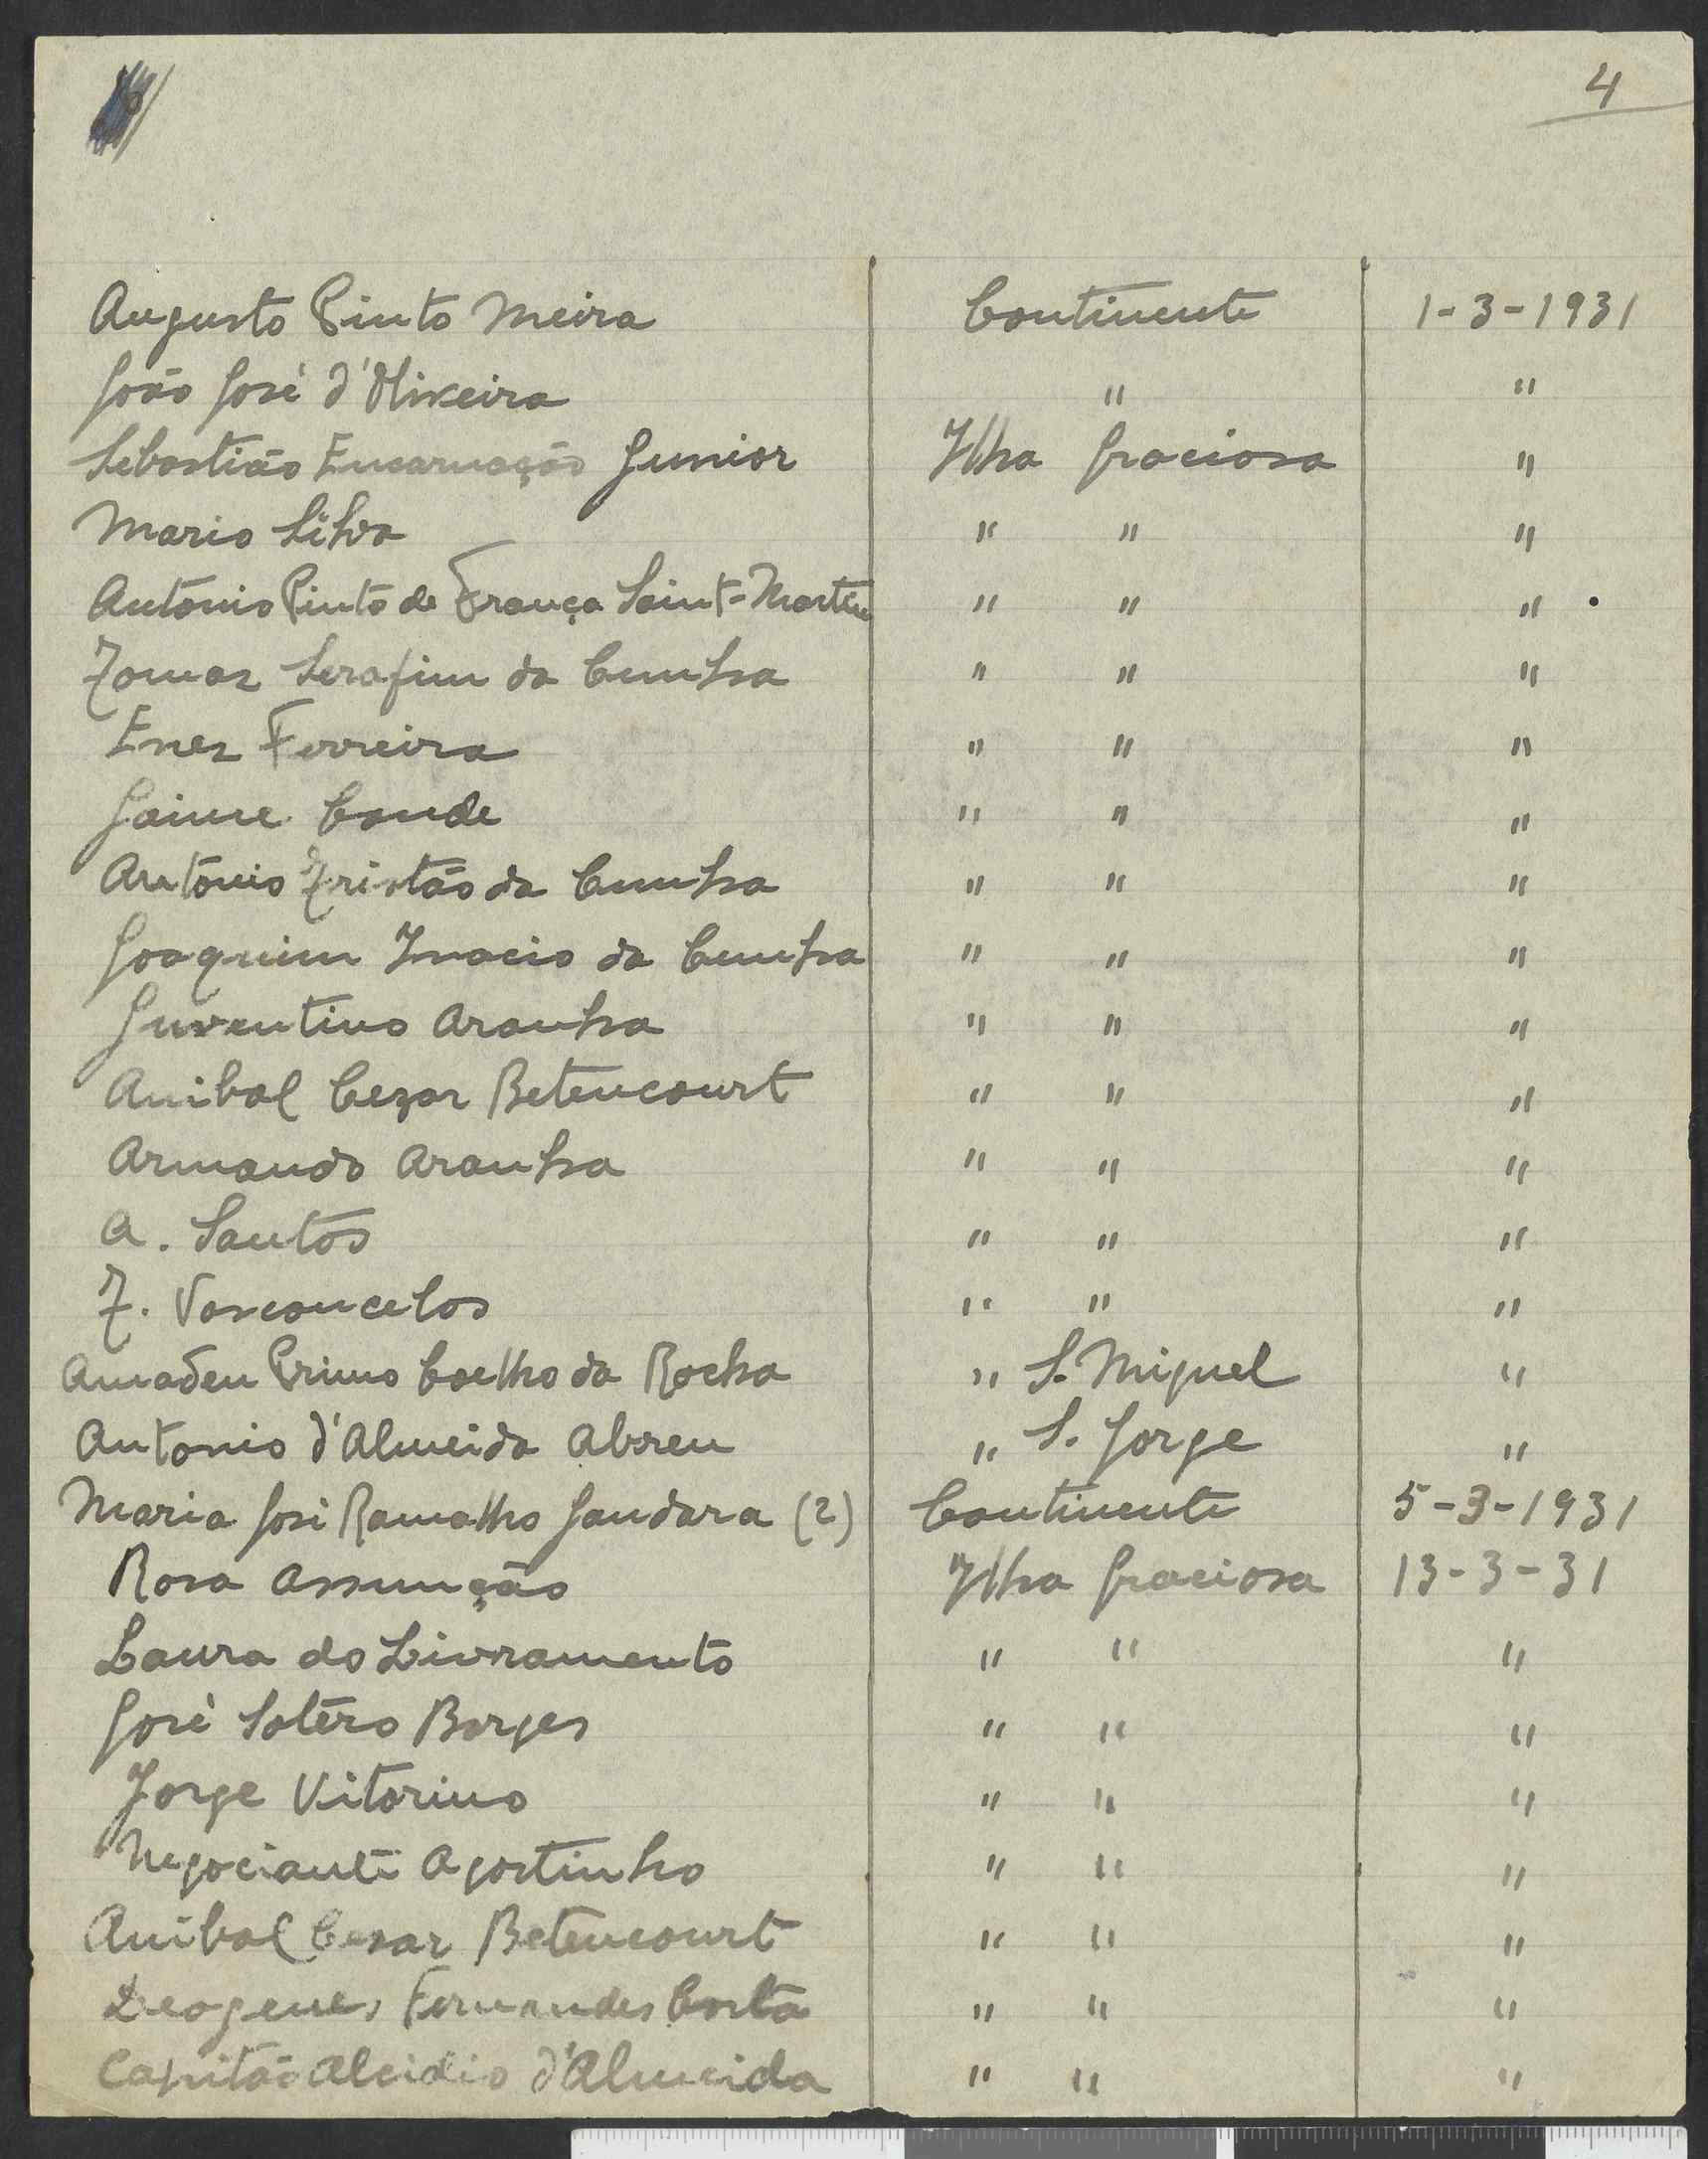 4
Augusto Pinto Meira Continente 1-3-1931
João José d'Oliveira " "
Sebastião Encarnação Junior Ilha Graciosa "
Mario Silva " " "
António Pinto de França Saint-Martin " " "
Tomaz Serafim da Cunha " " "
Enez Ferreira " " "
Jaime Conde " " "
António Tristão da Cunha " " "
Joaquim Inacio da Cunha " " "
Juventino Aranha " " "
Anibal Cezar Betencourt " " "
Armando Aranha " " "
A. Santos " " "
T. Vasconcelos " " "
Amadeu Primo Coelho da Rocha " S. Miguel "
Antonio d'Almeida Abreu " S. Jorge "
Maria José Ramalho Gandara (2) Continente 5-3-1931
Rosa Assunção Ilha Graciosa 13-3-31
Laura do Livramento " " "
José Sotéro Borges " " "
Jorge Vitorino " " "
Negociante Agostinho " " "
Anibal Cezar Betencourt " " "
Deogenes Fernandes Costa " " "
Capitão Alcidio d'Almeida " " "